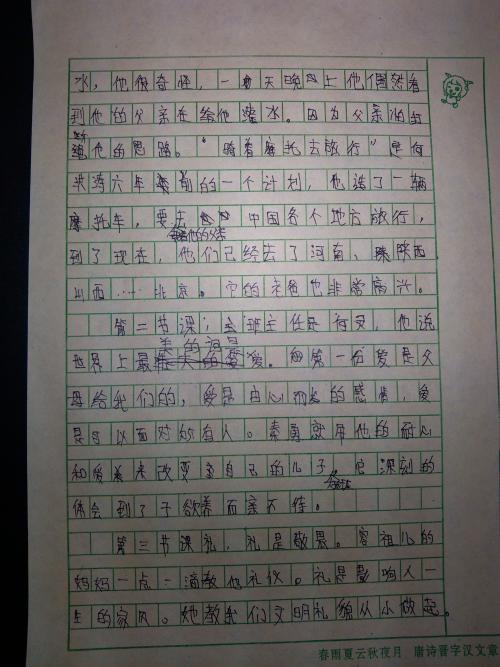 水，他很奇怪，一天晚上他偶然看
到他的父亲在给他灌水。因为父亲的
他的思路。"骑着摩托去旅行"是何
六年前的一个计划，他违了一辆
摩托车，要去中国各个地方旅行，
带着他的父亲
到了现在，他们已经去了河南、陕西
山西……北京。它的爸爸也非常高兴。
第二节课：班主任是何炅，他说
美的词是
世界上最爱。第一份爱是父
母给我们的，爱是由心而发的感情，爱
是可以面对所有人。就用他的耐心
和爱来改变自己的儿子，他深刻的
体会到了子欲养而亲不待。
第三节课礼，礼是敬畏。容祖儿的
妈妈一点一滴教他礼仪。礼是影响人一
生的家风。她教我们文明礼貌从小做起。
春雨夏云秋夜月 唐诗晋字汉文章